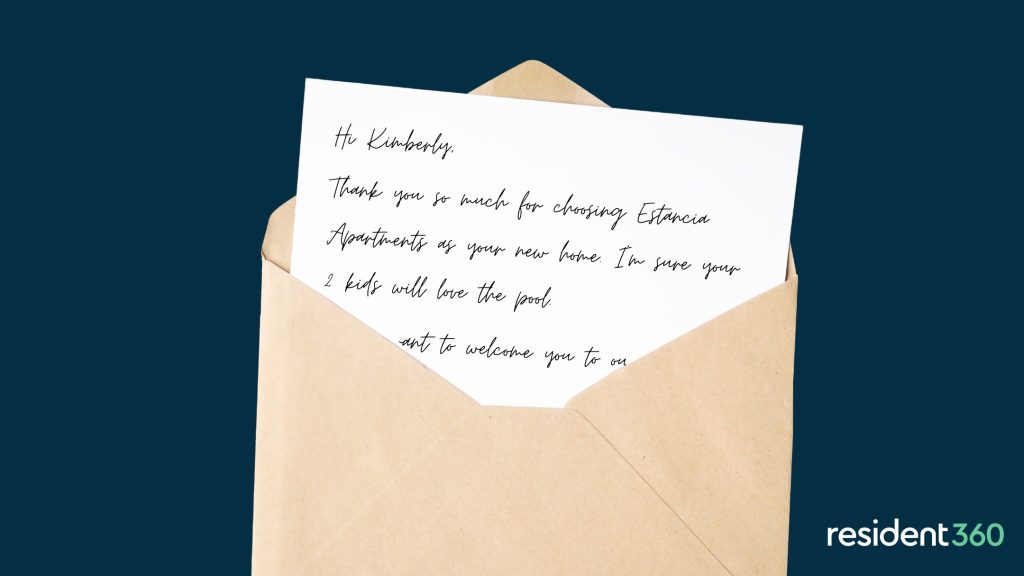 Hi Kimberly,
Thank you so much for choosing Estancia
Apartments as your new home. I'm sure your
2 kids will love the pool.
to welcome you to
resident360